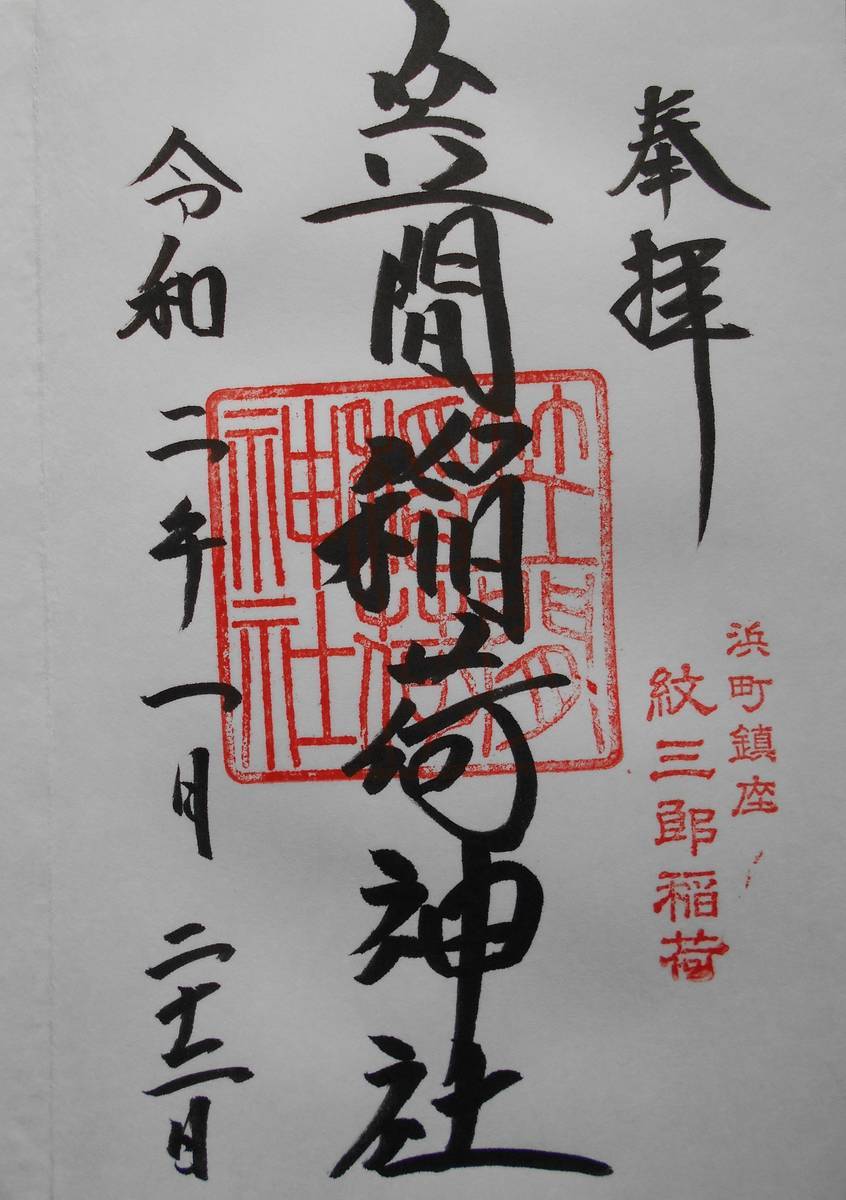 奉拝
浜町鎮座
紋三郎稲荷
笠間稲荷神社
笠間
稲荷
神社
令和二年一月二十二日